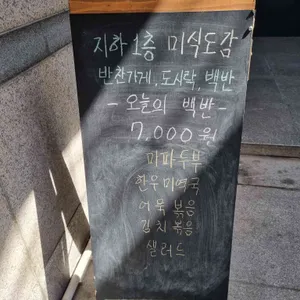 지하 1층 미식도감
반찬가게, 도시락, 백반
- 오늘의 백반 -
7,000원
마파두부
한우미역국
어묵 볶음
김치볶음
샐러드